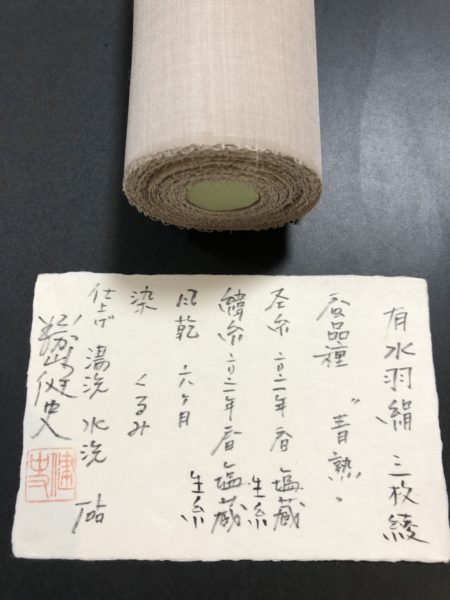 有水羽絹 三枚綾
蚕品種 “青熟”
経糸 二〇二一年 春 塩蔵 生糸
緯糸 二〇二一年 春 塩蔵 生糸
風乾 六ヶ月
染 くるみ
仕上げ 湯洗 水洗 砧